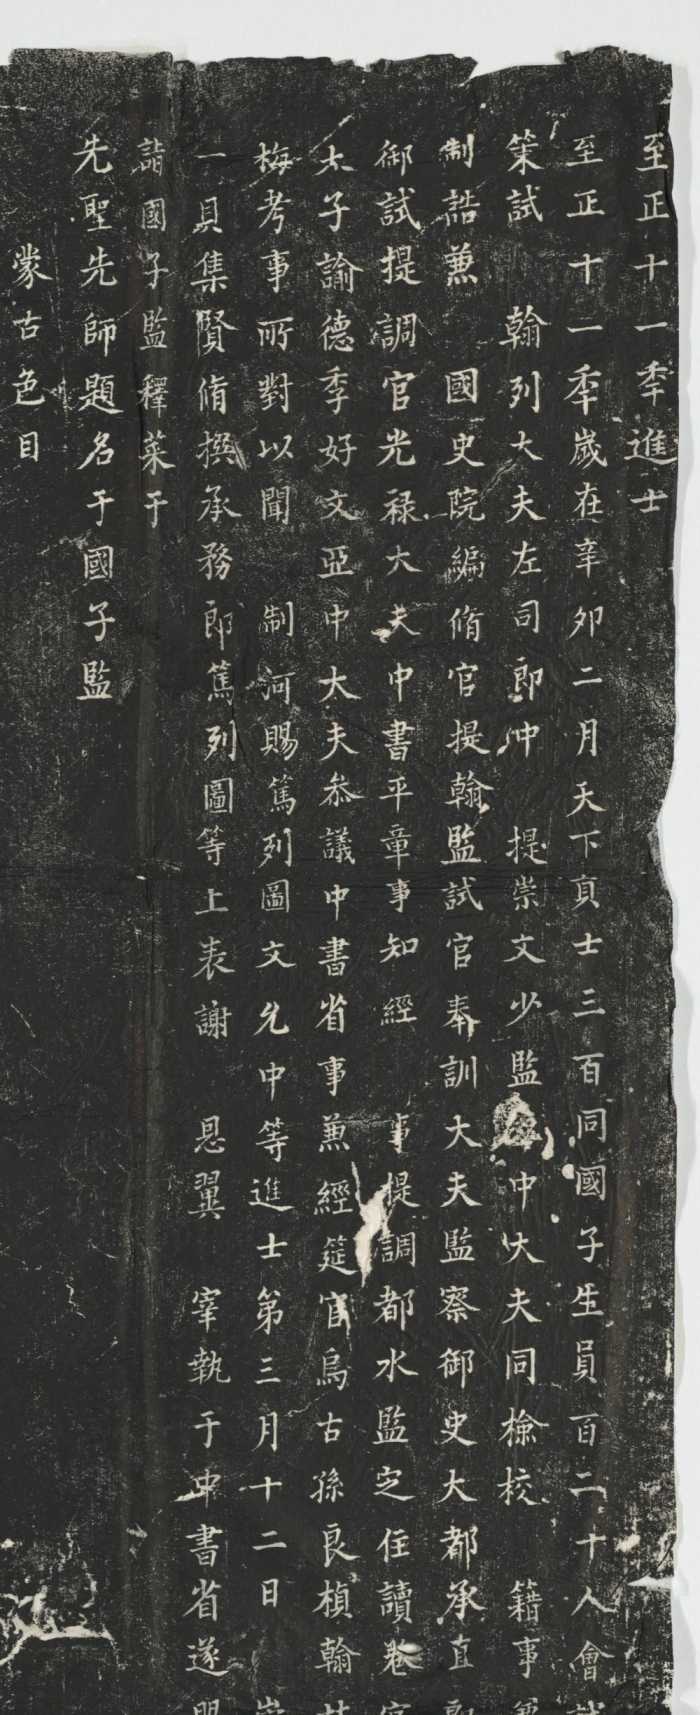 至正十一秊進士
至正十一秊歲在辛卯二月天下貢士三百同國子生員百二十人會試
策試 翰列大夫左司郎中 提崇文少監 中大夫同檢校 籍事
制誥兼 國史院編脩官提翰監試官奉訓大夫監察御史大都承直郎
御試提調官光祿大夫中書平章事知經 事提調都水監定住讀卷官
太子諭德李好文亞中大夫叅議中書省事兼經筵官烏古孫良楨翰林
梅考事所對以聞 制河賜篤列圖文允中等進士第三月十二日
一員集賢脩撰承務郎篤列圖等上表謝 恩翼 宰執于中書省遂
詣國子監釋菜于
先聖先師題名于國子監
蒙古色目